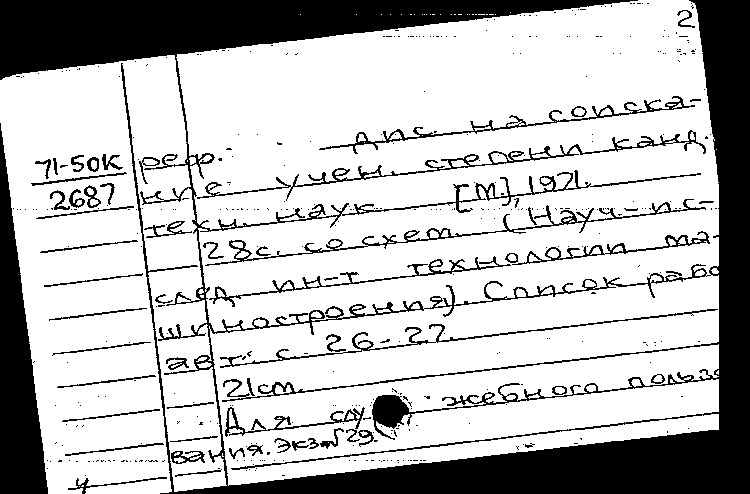 2
71-50К реф. Дис. на соиска-
2687 ние учен. степени канд.
техн. наук [М], 1971.
28с. со схем. (Науч.-ис-
след. ин-т технологии ма-
шиностроения). Список рабо
авт. с. 26-27.
21cm.
Для служебного пользо
вания. Экз. №29.
4